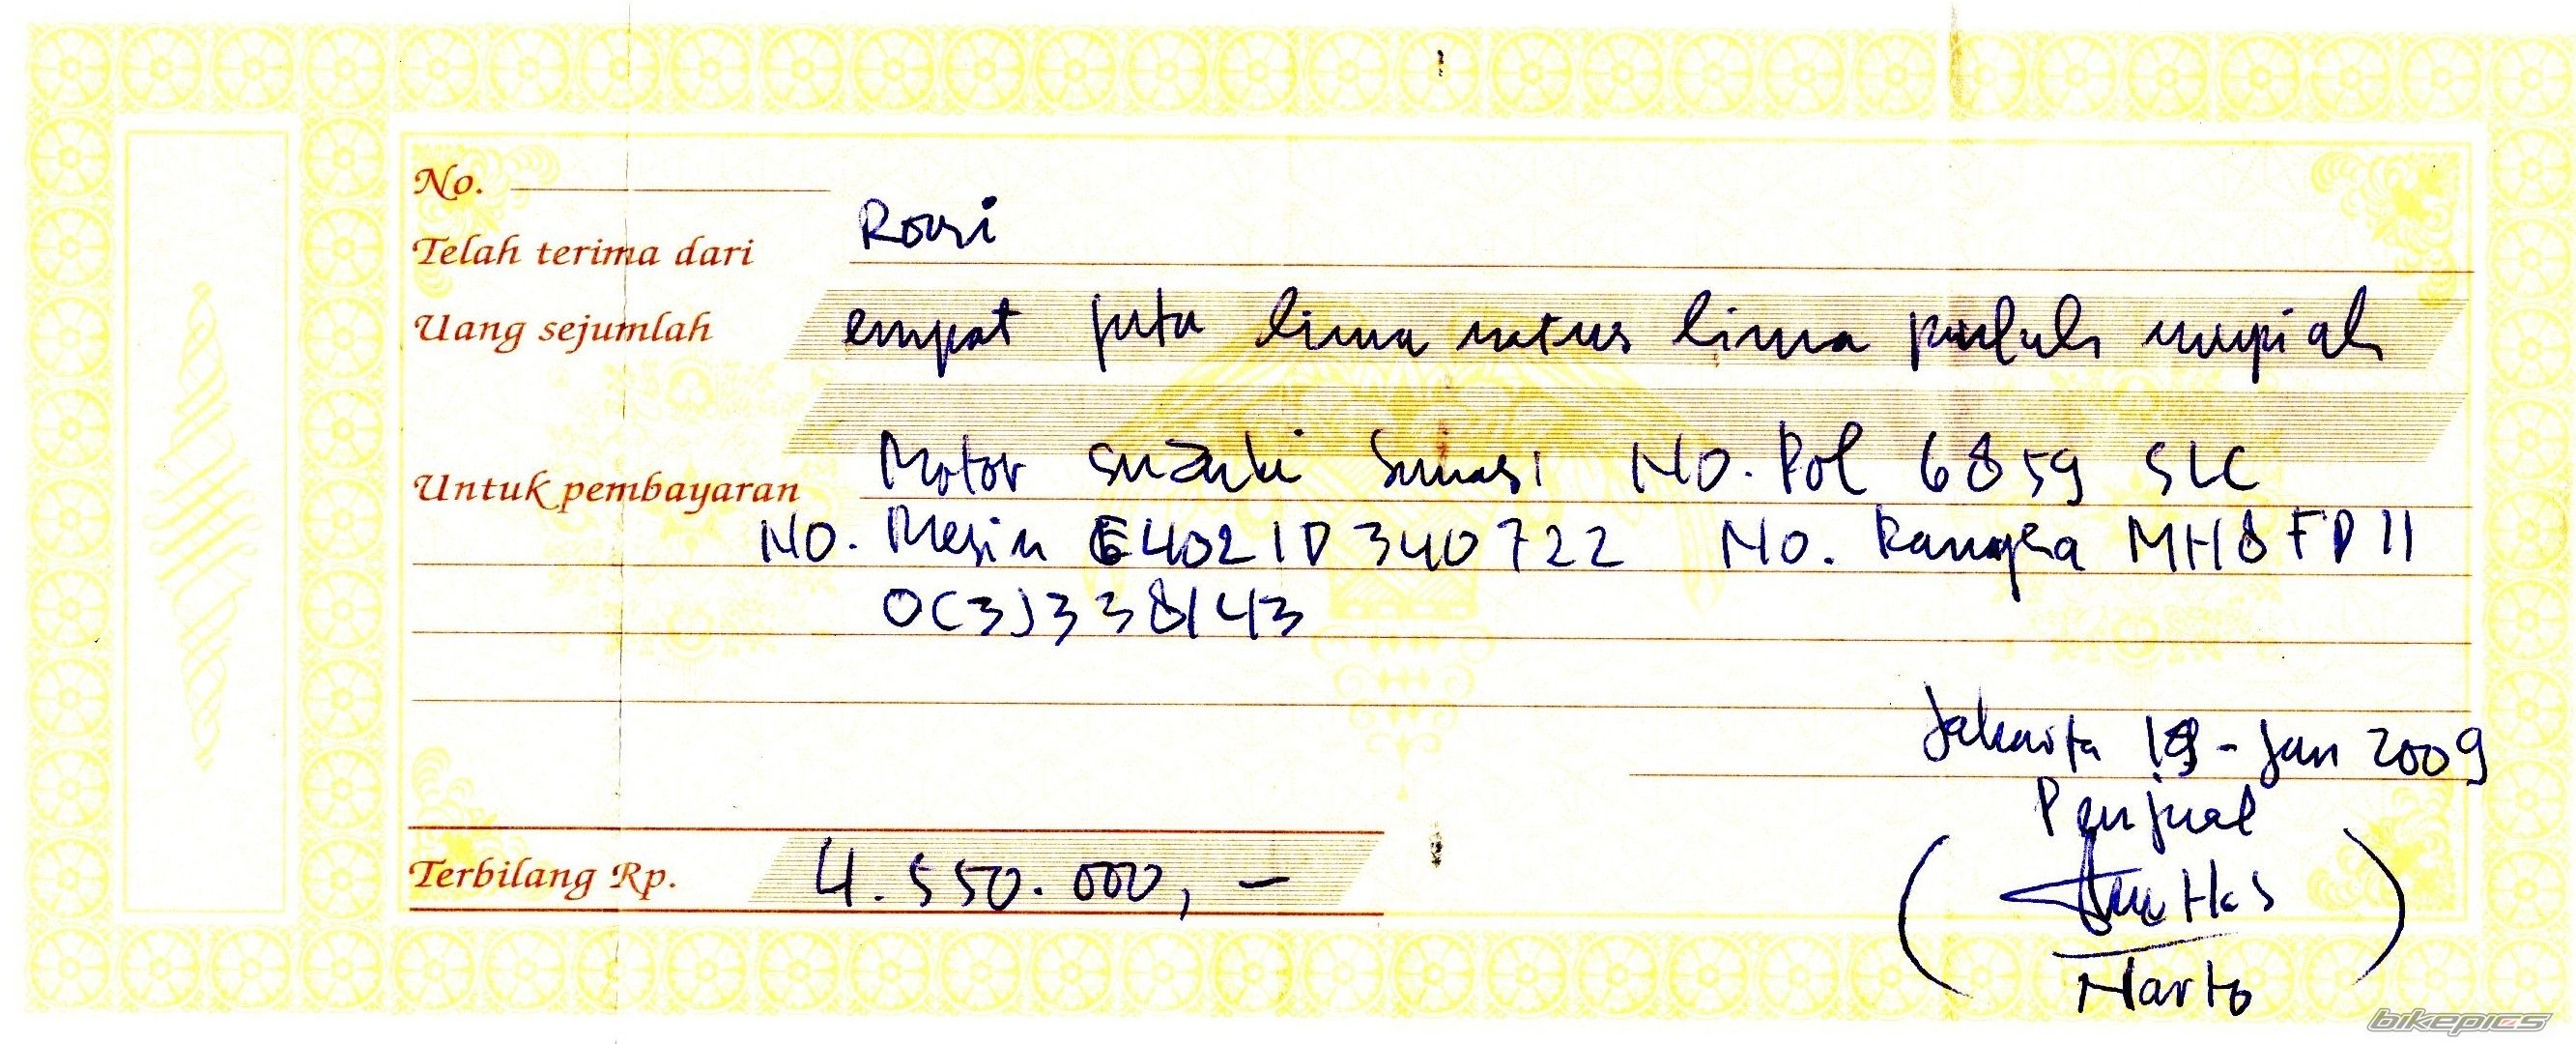 No.
Telah terima dari Rosri
Uang sejumlah empat juta lima ratus lima puluh rupiah
Untuk pembayaran Motor suzuki Smash No. Pol 6859 SLC
NO. Mesin E4021D340722 No. Rangka MH8FD11
0C3J338143
Jakarta 19-Jan 2009
Penjual
Terbilang Rp. 4.550.000,-
Narto
bikepics